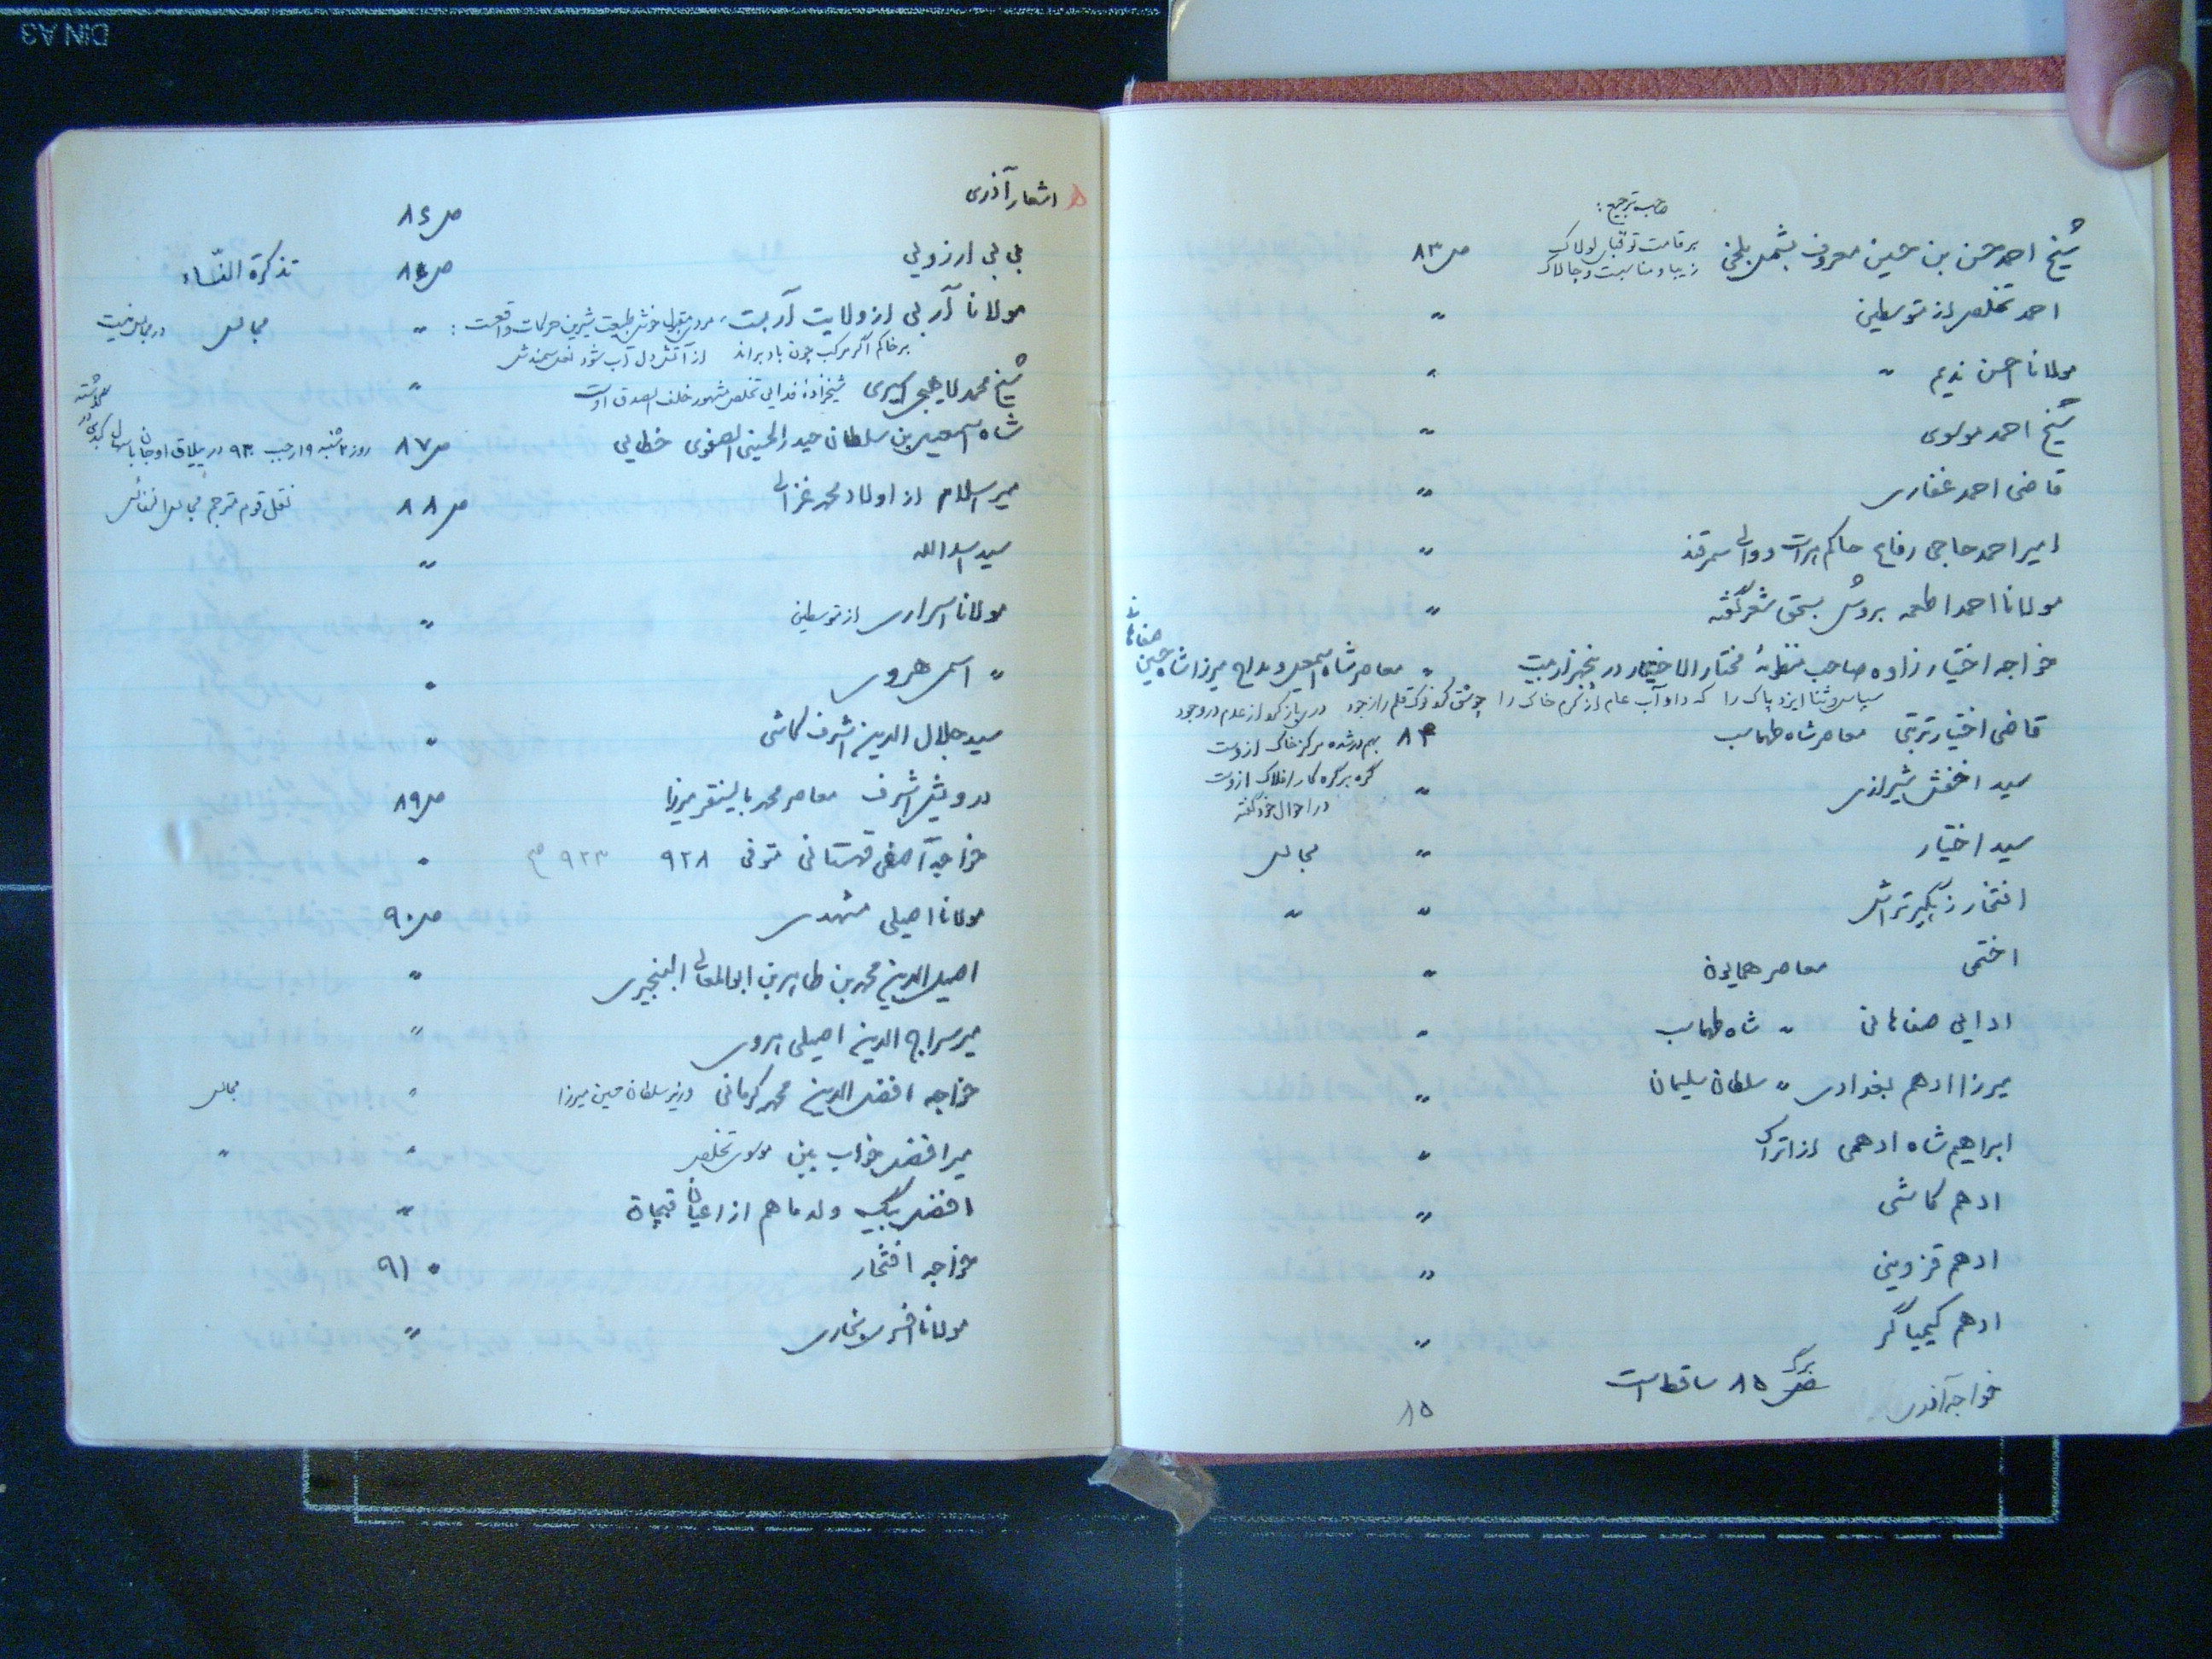 DIN A3
صاحب ترجیع :
شیخ احمد حسن بن حسین معروف بشمس بلخی بر قامت تو قبای لولاک ص ۸۳
زیبا و مناسبت و چالاک
احمد تخلص از متوسطین "
مولانا احسن ندیم " "
شیخ احمد مولوی "
قاضی احمد غفاری "
امیر احمد حاجی رفاع حاکم هرات و والی سمرقند "
مولانا احمد اطعمه بروش بسحق شعر گفته "
خواجه اختیار زاده صاحب منظومهٔ مختار الاختیار در پنجهزار بیت " معاصر شاه اسمعیل و مداح میرزا شاه حسین صفاهانی
سپاس و ثنا ایزد پاک را که داد آب عام از کرم خاک را
قاضی اختیار تربتی معاصر شاه طهماسب ۸۴
بهم در شده مرکز خاک ازوست
سید اخفش شیرازی "
گره بر گره کار افلاک ازوست
در احوال خود گفته
سید اختیار " مجالس
افتخار زهگیر تراش " "
اختمی معاصر همایون "
ادایی صفاهانی " شاه طهماسب "
میرزا ادهم بغدادی " سلطان سلیمان "
ابراهیم شاه ادهمی از اتراک "
ادهم کاشی "
ادهم قزوینی "
ادهم کیمیاگر "
برگ ۸۵ ساقط است
خواجه آذری ۸۵
اشعار آذری
ص ۸۶
بی بی آرزویی ص ۸۶ تذکرة النساء
مولانا آربی از ولایت آربت، مردی خوش طبیعت شیرین حرکات واقعست : " مجالس در مجالس نیست
بر خاکم اگر مرکب چون باد براند از آتش دل آب شود نعل سمندش
شیخ محمد لاهیجی اسیری شیخ زاده فدایی تخلص مشهور خلف الصدق اوست "
شاه اسمعیل بن سلطان حیدر الحسینی الصفوی خطایی ص ۸۷ روز ۲ شنبه ۱۹ رجب ۹۳۰ در ییلاق اوجان
میر اسلام از اولاد محمد غزالی ص ۸۸ نقل قوم مترجم مجالس النفائس
سید اسد الله "
مولانا اسراری از متوسطین "
" اسمی هروی "
سید جلال الدین اشرف کاشی "
درویش اشرف معاصر محمد بایسنقر میرزا ص ۸۹
خواجه آصفی قهستانی متوفی ۹۲۸ ۹۲۳ صح "
مولانا اصیلی مشهدی ص ۹۰
اصیل الدین محمد بن طاهر بن ابوالمعالی البنجیری "
میر سراج الدین اصیلی هروی "
خواجه افضل الدین محمد کرمانی وزیر سلطان حسین میرزا " مجالس
میر افضل خواب بین مولوی تخلص " "
افضل بیگ ولد ماهم از اعیان قپچاق "
خواجه افتخار " ۹۱
مولانا افسری بخاری "